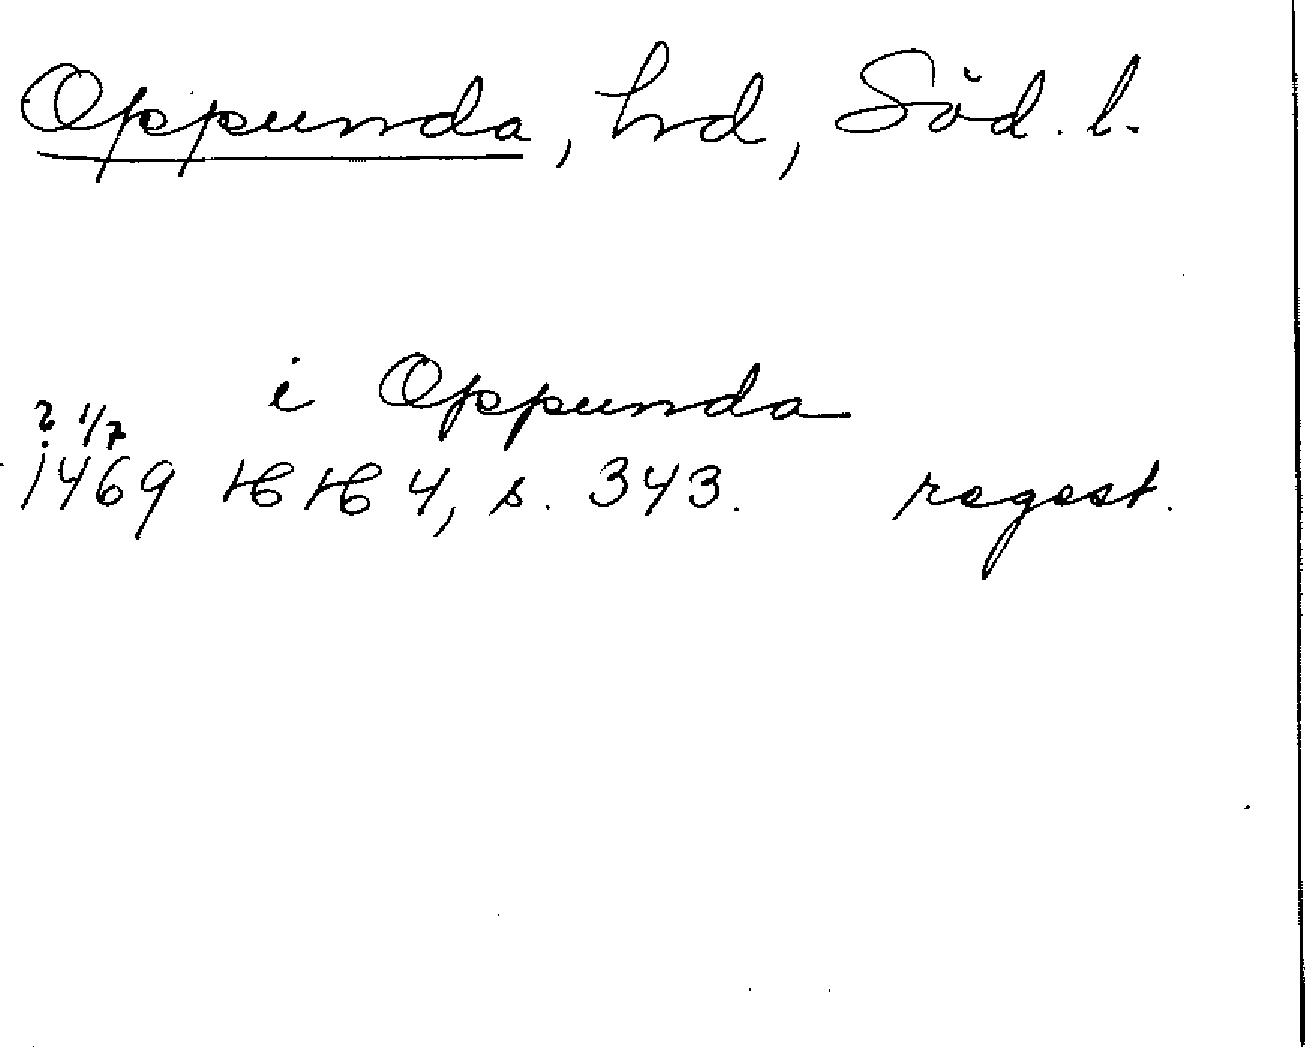 Oppunda, hd, Söd. l.
i Oppunda
? 1/7
1469 HH 4, s. 343. regest.